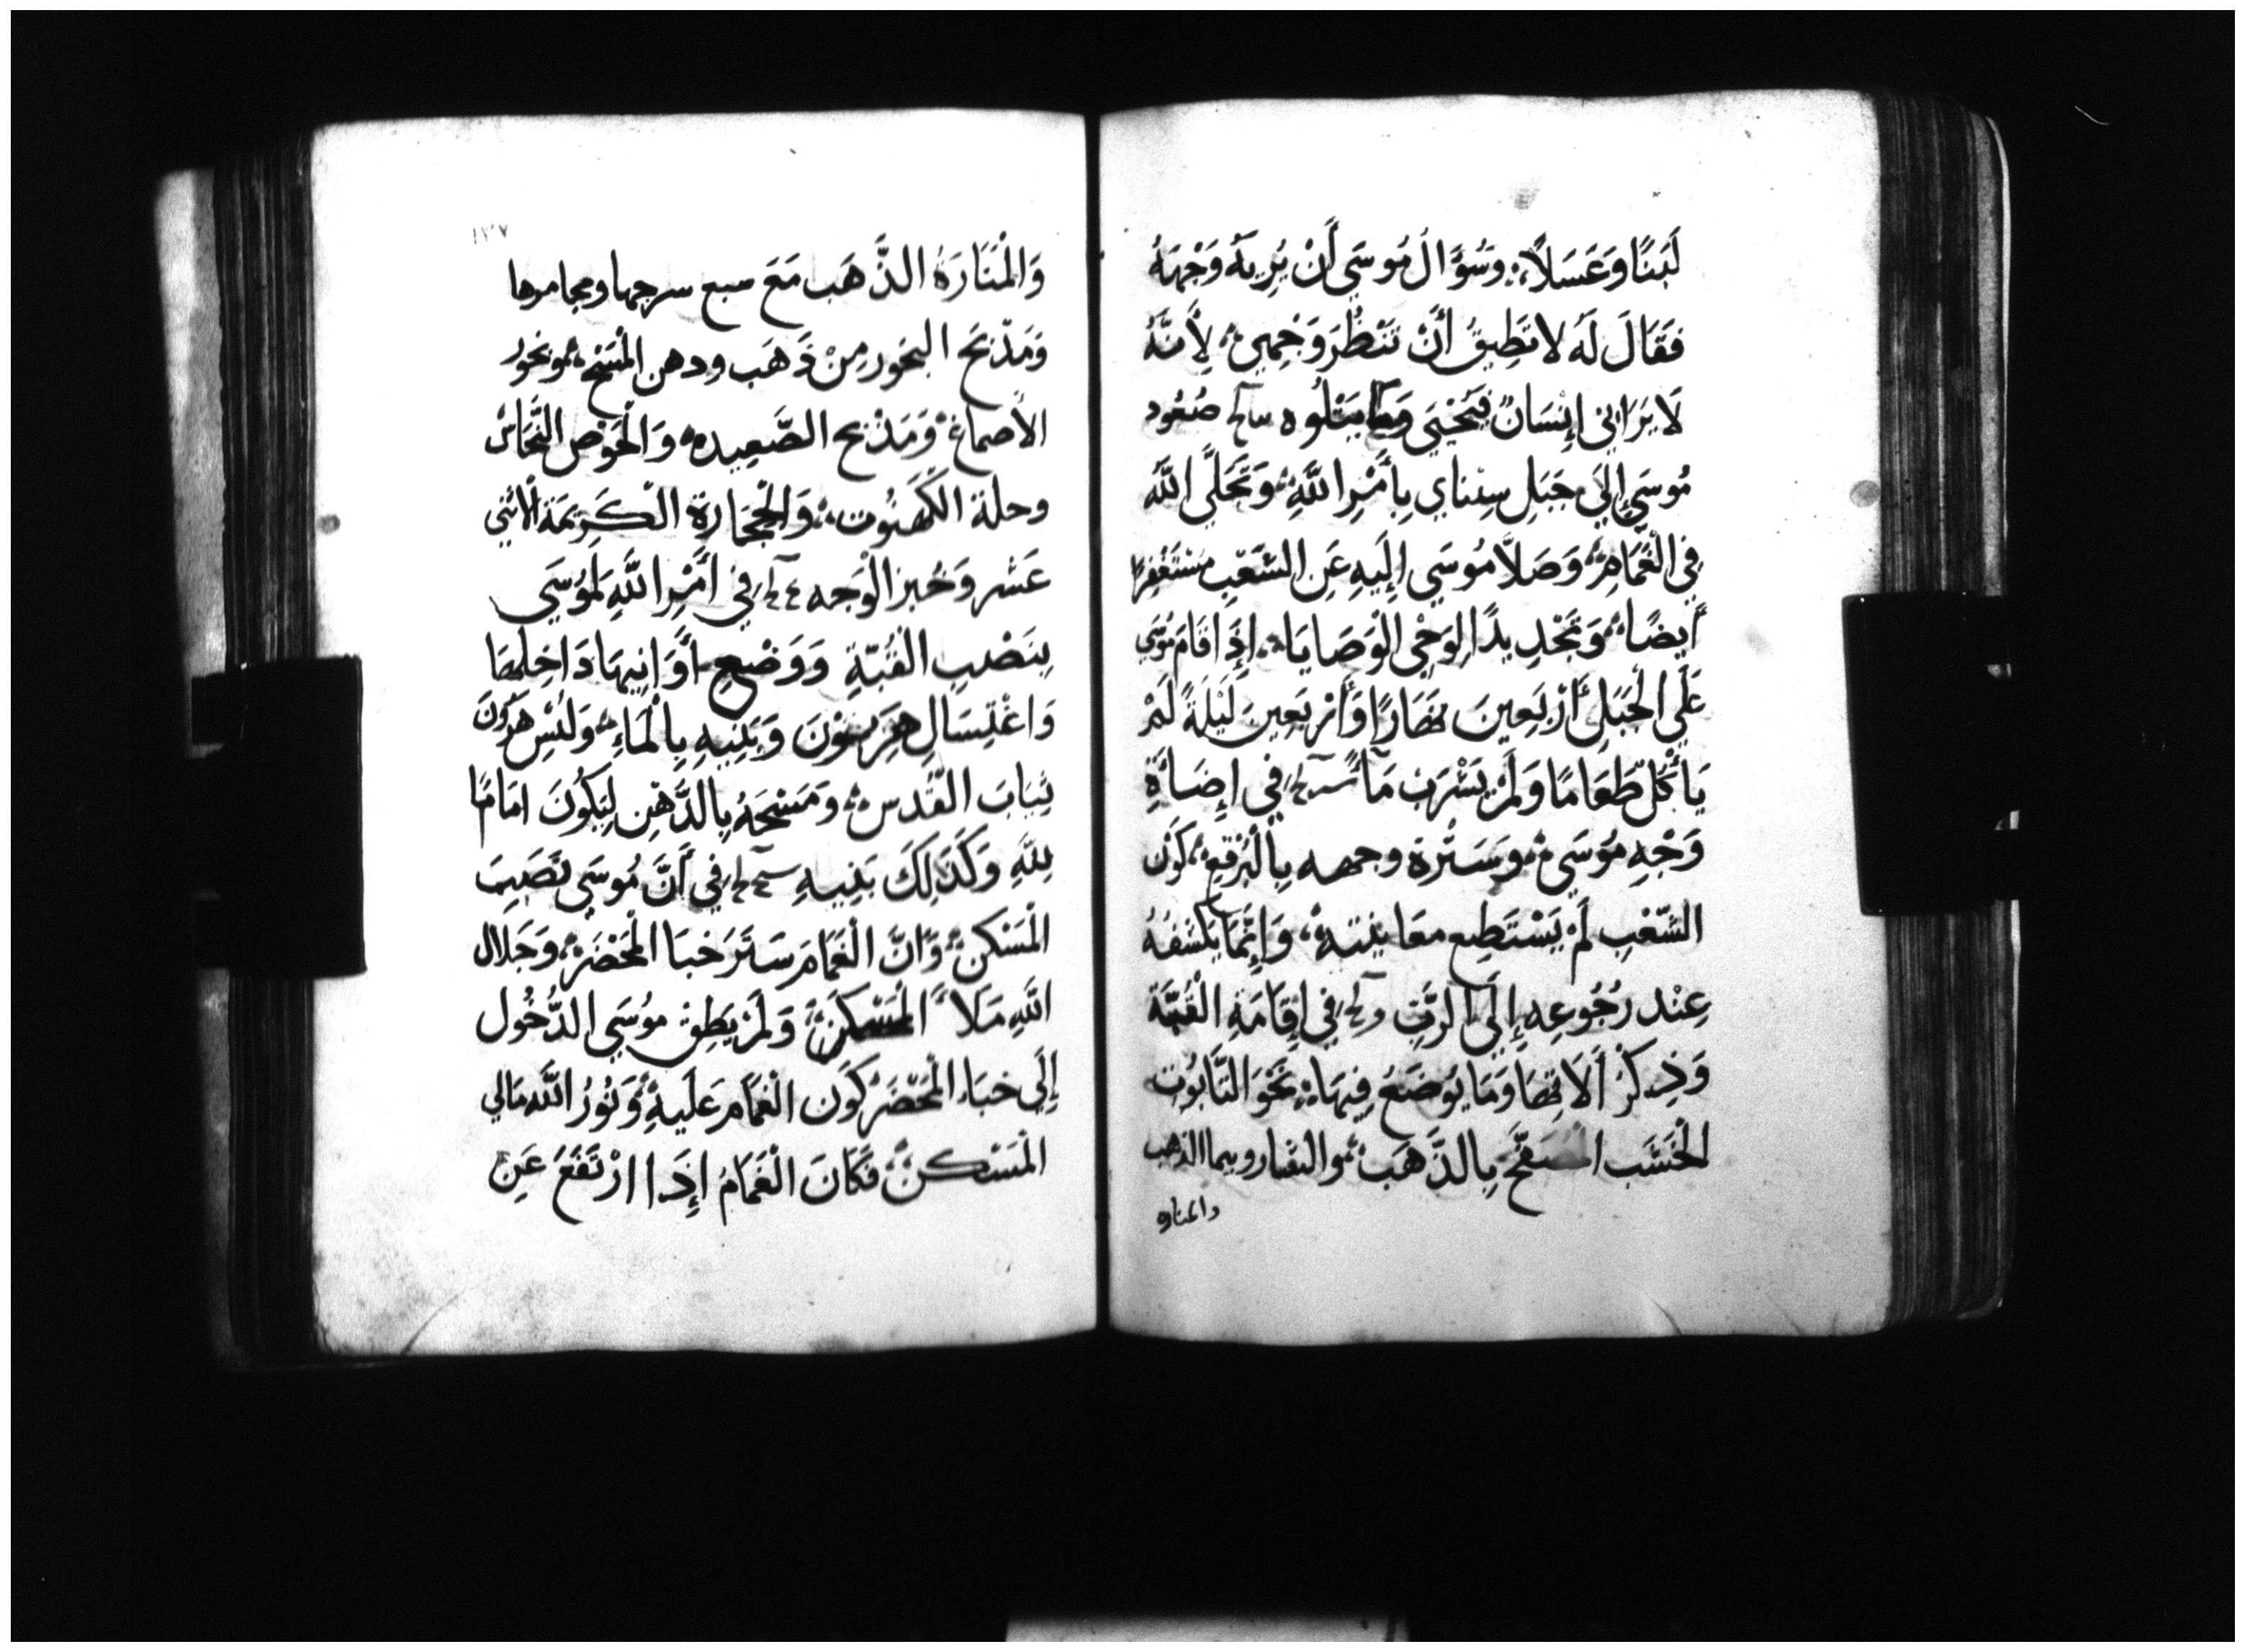 لَبَنًا وَعَسَلاً ؛ وَسُؤَالُ مُوسَي أَنْ يُرِيَهُ وَجْهَهُ
فَقَالَ لَهُ لا تَطِيقُ أَنْ تَنْظُرَ وَجْهِي ؛ لِأَنَّهُ
لَا يَرَانِي إِنْسَانٌ فَيَحْيَي وَمَا يتْلُوه صُعُود
مُوسَي إِلَي جَبَلِ سِيناي بِأَمْرِ اللَّهِ ؛ وَتَجَلَّي اللَّه
فِي الْغَمَامِ ؛ وَصَلاَّ مُوسَي إِلَيهِ عَنِ الشَّعْبِ مُسْتَغْفِرًا
أَيضًا ؛ وَتَجْدِيدًا لِوَحْيِ الْوَصَايَا ؛ إِذَا قَامَ مُوسَي
عَلَي الْجَبَلِ أَرْبَعِينَ نَهَارًا وَأَرْبَعِينَ لَيْلَةً لَمْ
يَأْكُلْ طَعَامًا وَلَمْ يَشْرَبْ مَآءً فِي إِضَاءَةِ
وَجْهِ مُوسَي ؛ وَسَتْرِهِ وجهه بِالْبُرْقعِ ؛ كَوْن
الشَّعْبِ لَمْ يَسْتَطِع معَاينته ؛ وَإِنَّمَا يَكْشفهُ
عِنْد رُجُوعِهِ إِلَي الرَّبِّ فِي إِقَامَةِ الْقُبَّة
وَذِكْرُ أَلاَتِهَا وَمَا يُوضَعُ فِيهَا ؛ نَحْوَ التَّابُوت
الْخَشَب الْمصَفَّح بِالذَّهَب ؛ والشاروبيما الذهب
والمناره
١٣٧
وَالْمَنَارَهُ الذَّهَب مَعَ سبع سرجها ومجامرها
وَمَذْبَح البخور مِنْ ذَهَب ودهن الْمَسْحِ ؛ وبخور
الأَصماغ ؛ وَمَذْبح الصَّعِيده ؛ وَالْحَوْض النُّحَاس
وحلة الكَهَنُوت ؛ وَالْحِجَارة الْكَرِيمَة الْاثني
عَشر وَخُبز الْوَجه فِي أَمْرِ اللَّهِ لِمُوسَي
بِنَصْبِ الْقُبّةِ وَوَضْعِ أَوَانِيهَا دَاخِلَهَا
وَاغْتِسَالِ هَرُونَ وَبَنِيهِ بِالْمَاءِ ؛ وَلُبْسِ هَرُونَ
ثِيَابَ الْقُدس ؛ وَمَسْحَهُ بِالدُّهْنِ لِيَكُونَ امَامًا
لِلَّهِ وَكَذَلِكَ بَنِيهِ فِي أَنَّ مُوسَي نَصَبَ
الْمَسْكن ؛ وَانَّ الْغَمَامَ سَتَرَ خبَا الْمَحْضَر ؛ وَجَلَال
اللَّهِ مَلَأَ الْمَسْكَن ؛ وَلَمْ يَطِق مُوسَي الدُّخُول
إِلَي خبَاءِ الْمَحْضَر كَوْن الْغمَام عَلَيهِ ؛ وَنُورُ اللَّه مَالي
الْمَسْكن ؛ فَكَانَ الْغَمَامُ إِذَا ارْتَفَعَ عَنِ